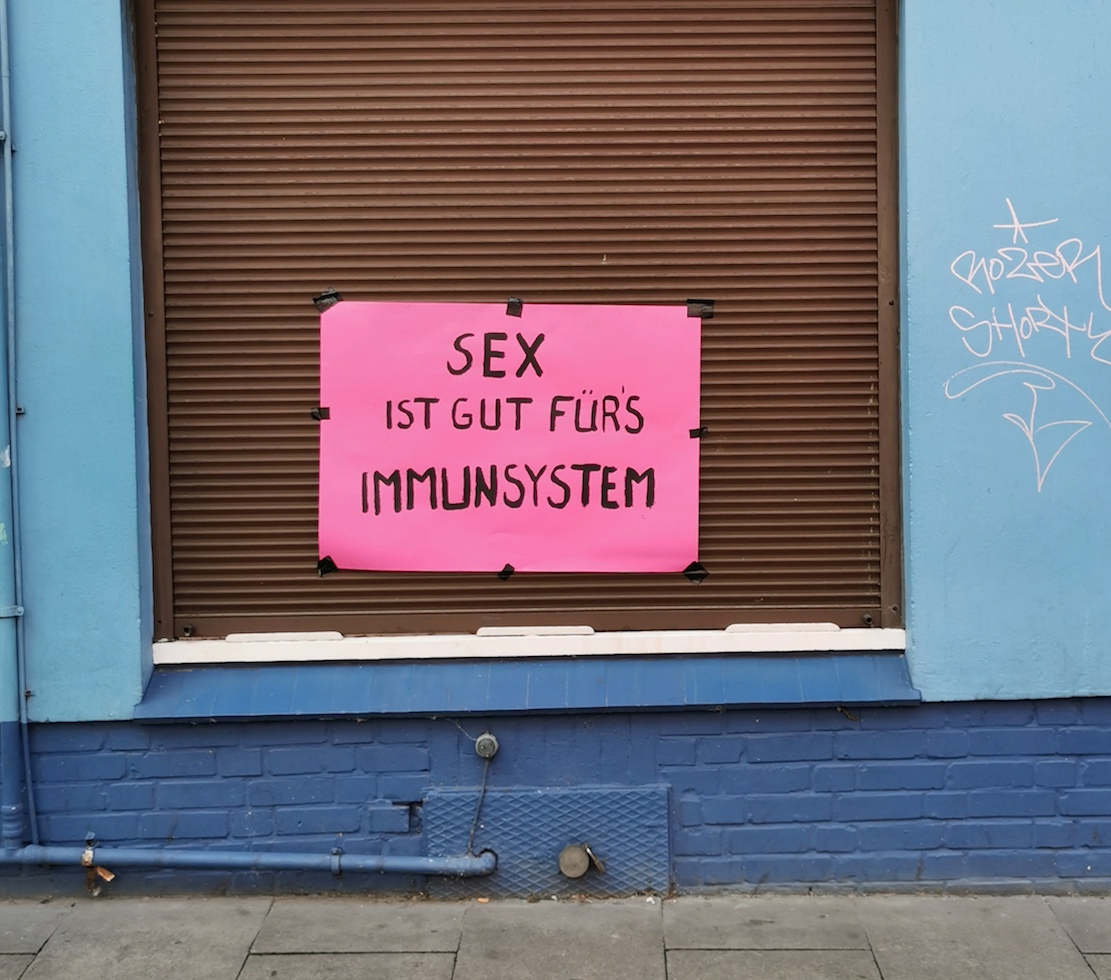 SEX
IST GUT FÜR'S
IMMUNSYSTEM
ROZER
SHORTY